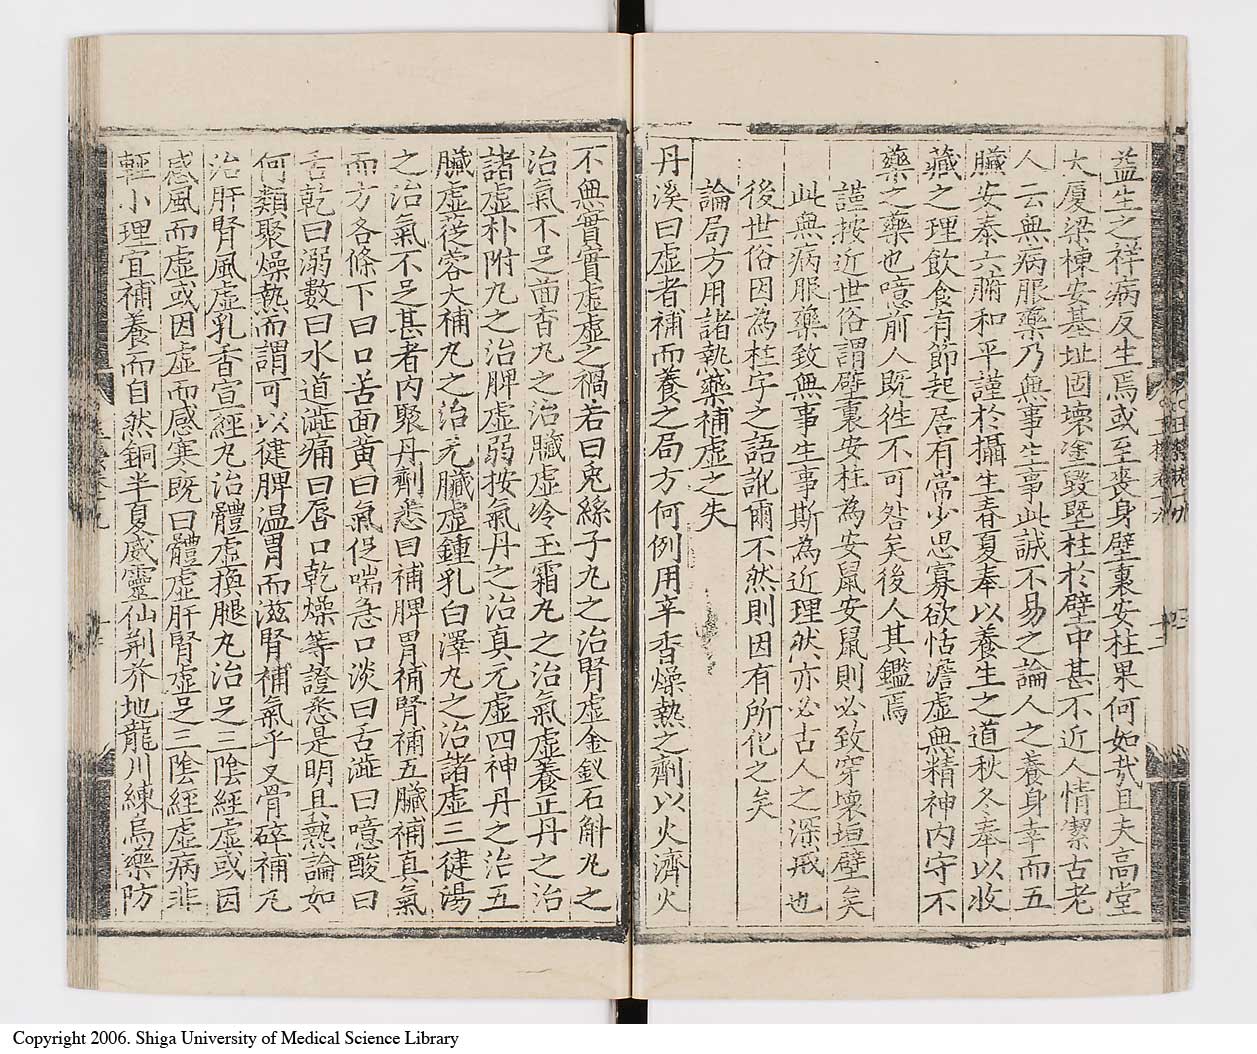 益生之祥病反生焉或至喪身壁裏安柱果何如哉且夫高堂
大廈梁棟安基址固壞塗毀墍柱於壁中甚不近人情潔古老
人云無病服藥乃無事生事此誠不易之論人之養身幸而五
臟安泰六腑和平謹於攝生春夏奉以養生之道秋冬奉以收
藏之理飲食有節起居有常少思寡欲恬澹虛無精神內守不
藥之藥也噫前人既徃不可咎矣後人其鑑焉
謹按近世俗謂壁裏安柱為安鼠安鼠則必致穿壞垣壁矣
此無病服藥致無事生事斯為近理然亦必古人之深戒也
後世俗因為柱字之語訛爾不然則因有所化之矣
論局方用諸熱藥補虛之失
丹溪曰虛者補而養之局方何例用辛香燥熱之劑以火濟火
不無實實虛虛之禍若曰兔絲子丸之治腎虛金釵石斛丸之
治氣不足茴香丸之治臟虛冷玉霜丸之治氣虛養正丹之治
諸虛朴附丸之治脾虛弱按氣丹之治真元虛四神丹之治五
臟虛蓯蓉大補丸之治元臟虛鍾乳白澤丸之治諸虛三健湯
之治氣不足甚者內聚丹劑悉曰補脾胃補腎補五臟補真氣
而方各條下曰口苦面黃曰氣促喘急口淡曰舌澁曰噫酸曰
舌乾曰溺數曰水道澁痛曰唇口乾燥等證悉是明且熱論如
何類聚燥熱而謂可以健脾溫胃而滋腎補氣乎又骨碎補丸
治肝腎風虛乳香宣經丸治體虛換腿丸治足三陰經虛或因
感風而虛或因虛而感寒既曰體虛肝腎虛足三陰經虛病非
輕小理宜補養而自然銅半夏威靈仙荊芥地龍川練烏藥防